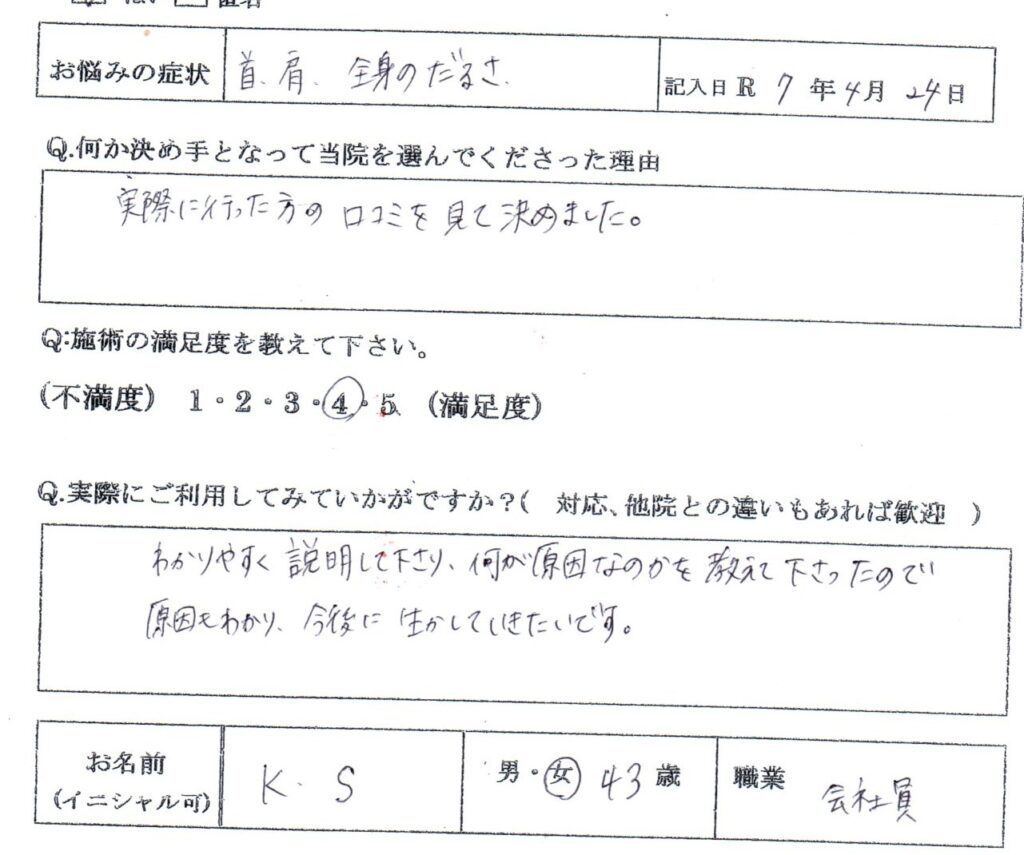 はい 匿名
お悩みの症状 首、肩、全身のだるさ、 記入日 R 7 年 4 月 24 日
Q.何か決め手となって当院を選んでくださった理由
実際に行った方の口コミを見て決めました。
Q:施術の満足度を教えて下さい。
(不満度) 1・2・3・4・5 (満足度)
Q.実際にご利用してみていかがですか?( 対応、他院との違いもあれば歓迎 )
わかりやすく説明して下さり、何が原因なのかを教えて下さったので
原因もわかり、今後に生かしていきたいです。
お名前 K. S 男・女 43 歳 職業 会社員
(イニシャル可)